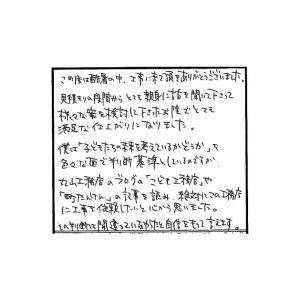 この度は酷暑の中、工事に来て頂きありがとうございました。
見積もりの段階からとても親身に話を聞いて下さって
様々な案を検討して下さったお陰でとても
満足な仕上がりになりました。
僕は「子どもたちの未来を考えているかどうか」を
色々な面で判断基準としているのですが、
工務店のブログの「こども工務店」や
の記事を読み、絶対にこの工務店
に工事を依頼したいと心から思いました。
の判断は間違っていなかったと自信をもって言えます。